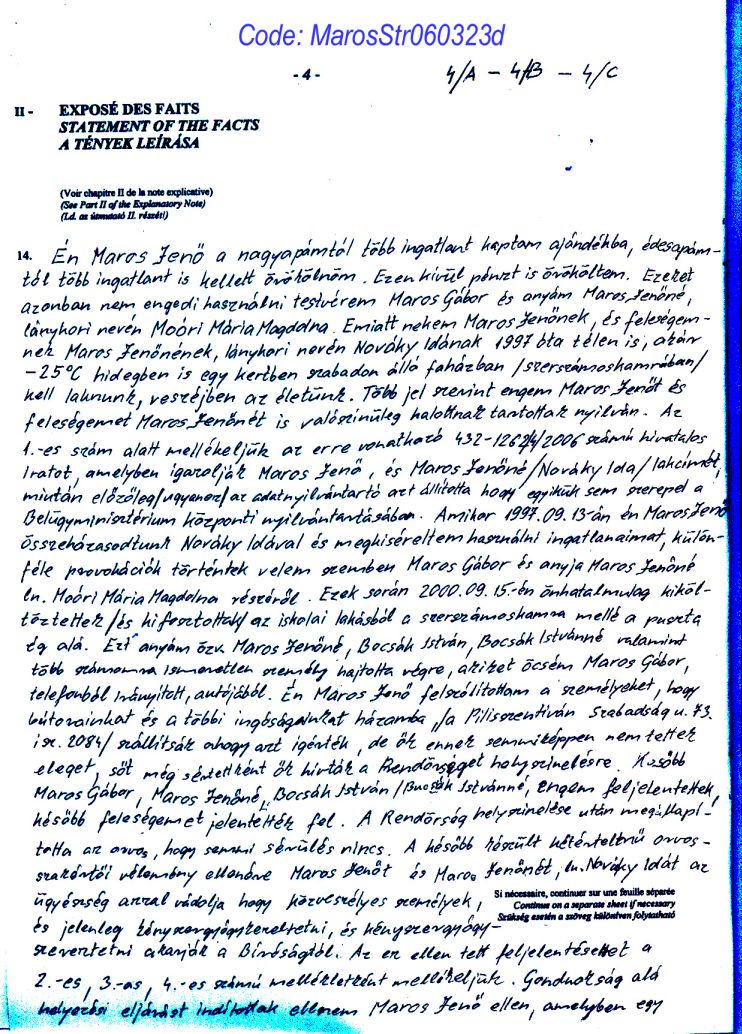 Code: MarosStr060323d
- 4 -
4/A – 4/B – 4/C
II - EXPOSÉ DES FAITS
STATEMENT OF THE FACTS
A TÉNYEK LEÍRÁSA
(Voir chapitre II de la note explicative)
(See Part II of the Explanatory Note)
(Ld. az útmutató II. részét!)
14. Én Maros Jenő a nagyapámtól több ingatlant kaptam ajándékba, édesapám-
tól több ingatlant is kellett örökölnöm. Ezen kívül pénzt is örököltem. Ezeket
azonban nem engedi használni testvérem Maros Gábor és anyám Maros Jenőné,
lánykori nevén Moóri Mária Magdolna. Emiatt nekem Maros Jenőnek, és feleségem-
nek Maros Jenőnének, lánykori nevén Nováky Idának 1997 óta télen is, akár
-25°C hidegben is egy kertben szabadon álló faházban /szerszámoskamrában/
kell laknunk, veszélyben az életünk. Több jel szerint engem Maros Jenőt és
feleségemet Maros Jenőnét is valószinüleg halottnak tartottak nyilván. Az
1.-es szám alatt mellékeljük az erre vonatkozó 432-12624/2006 számú hivatalos
iratot, amelyben igazolják Maros Jenő, és Maros Jenőné /Nováky Ida/ lakcímét,
miután előzőleg /ugyanez/ az adatnyilvántartó azt állította hogy egyikük sem szerepel a
Belügyminisztérium központi nyilvántartásában. Amikor 1997.09.13-án én Maros Jenő
összeházasodtunk Nováky Idával és megkiséreltem használni ingatlanaimat, külön-
féle provokációk történtek velem szemben Maros Gábor és anyja Maros Jenőné
ln. Moóri Mária Magdolna részéről. Ezek során 2000.09.15.-én önhatalmulag kiköl-
töztettek /és kifosztottak/ az iskolai lakásból a szerszámoskamra mellé a puszta
ég alá. Ezt anyám özv. Maros Jenőné, Bocsák István, Bocsák Istvánné valamint
több számomra ismeretlen személy hajtotta végre, akiket öcsém Maros Gábor,
telefonból irányított, autójából. Én Maros Jenő felszólítottam a személyeket, hogy
bútorainkat és a többi ingóságainkat házamba, /a Pilisszentiván Szabadság u. 73.
isz. 2084/ szállítsák ahogy azt igérték, de ők ennek semmiképpen nem tettek
eleget, sőt még sértettként ők hívták a Rendőrséget helyszinelésre. Később
Maros Gábor, Maros Jenőné, Bocsák István /Bocsák Istvánné, engem feljelentettek,
később feleségemet jelentették fel. A Rendőrség helyszinelése után megállapí-
totta az orvos, hogy semmi sérülés nincs. A később készült kétértelmű orvos-
szakértői vélemény ellenére Maros Jenőt és Maros Jenőnét, ln. Nováky Idát az
ügyészség azzal vádolja hogy közveszélyes személyek,
Si nécessaire, continuer sur une feuille séparée
Continue on a separate sheet if necessary
Szükség esetén a szöveg különíven folytatható
és jelenleg kényszergyógykezeltetni, és kényszergyógy-
szereztetni akarják a Bíróságtól. Az ez ellen tett feljelentéseket a
2.-es, 3.-as, 4.-es számú mellékletként mellékeljük. Gondnokság alá
helyezési eljárást indítottak ellenem Maros Jenő ellen, amelyben egy